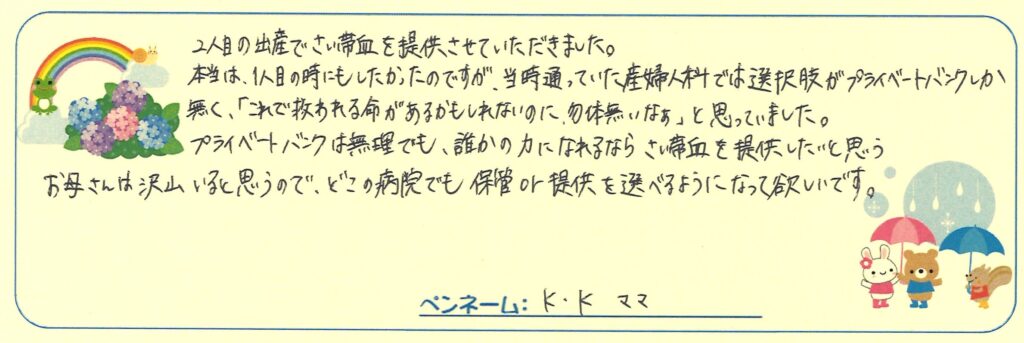 2人目の出産でさい帯血を提供させていただきました。
本当は、1人目の時にもしたかったのですが、当時通っていた産婦人科では選択肢がプライベートバンクしか
無く、「これで救われる命があるかもしれないのに、勿体無いなぁ」と思っていました。
プライベートバンクは無理でも、誰かの力になれるなら さい帯血を提供したいと思う
お母さんは沢山いると思うので、どこの病院でも 保管or提供を選べるようになって欲しいです。
ペンネーム： K・K ママ